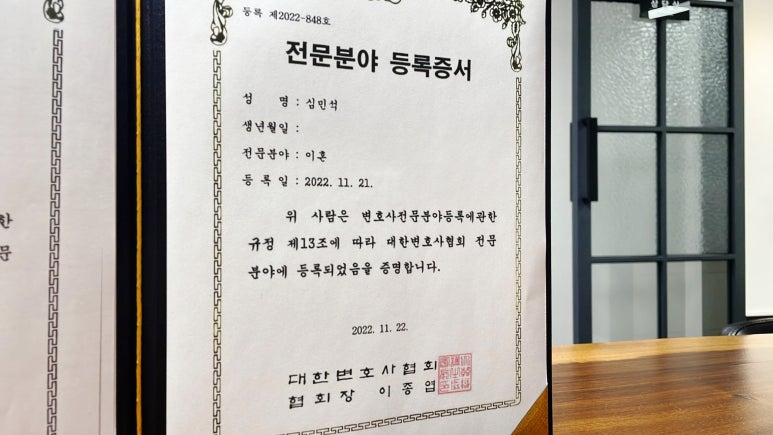 등록 제2022-848호
전문분야 등록증서
성 명 : 심민석
생년월일 :
전문분야 : 이혼
등 록 일 : 2022. 11. 21.
위 사람은 변호사전문분야등록에관한
규정 제13조에 따라 대한변호사협회 전문
분야에 등록되었음을 증명합니다.
2022. 11. 22.
대한변호사협회
협회장 이종엽
한
문
상담실